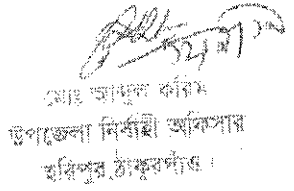 মোঃ আব্দুল করিম
উপজেলা নির্বাহী অফিসার
হরিপুর, ঠাকুরগাঁও।